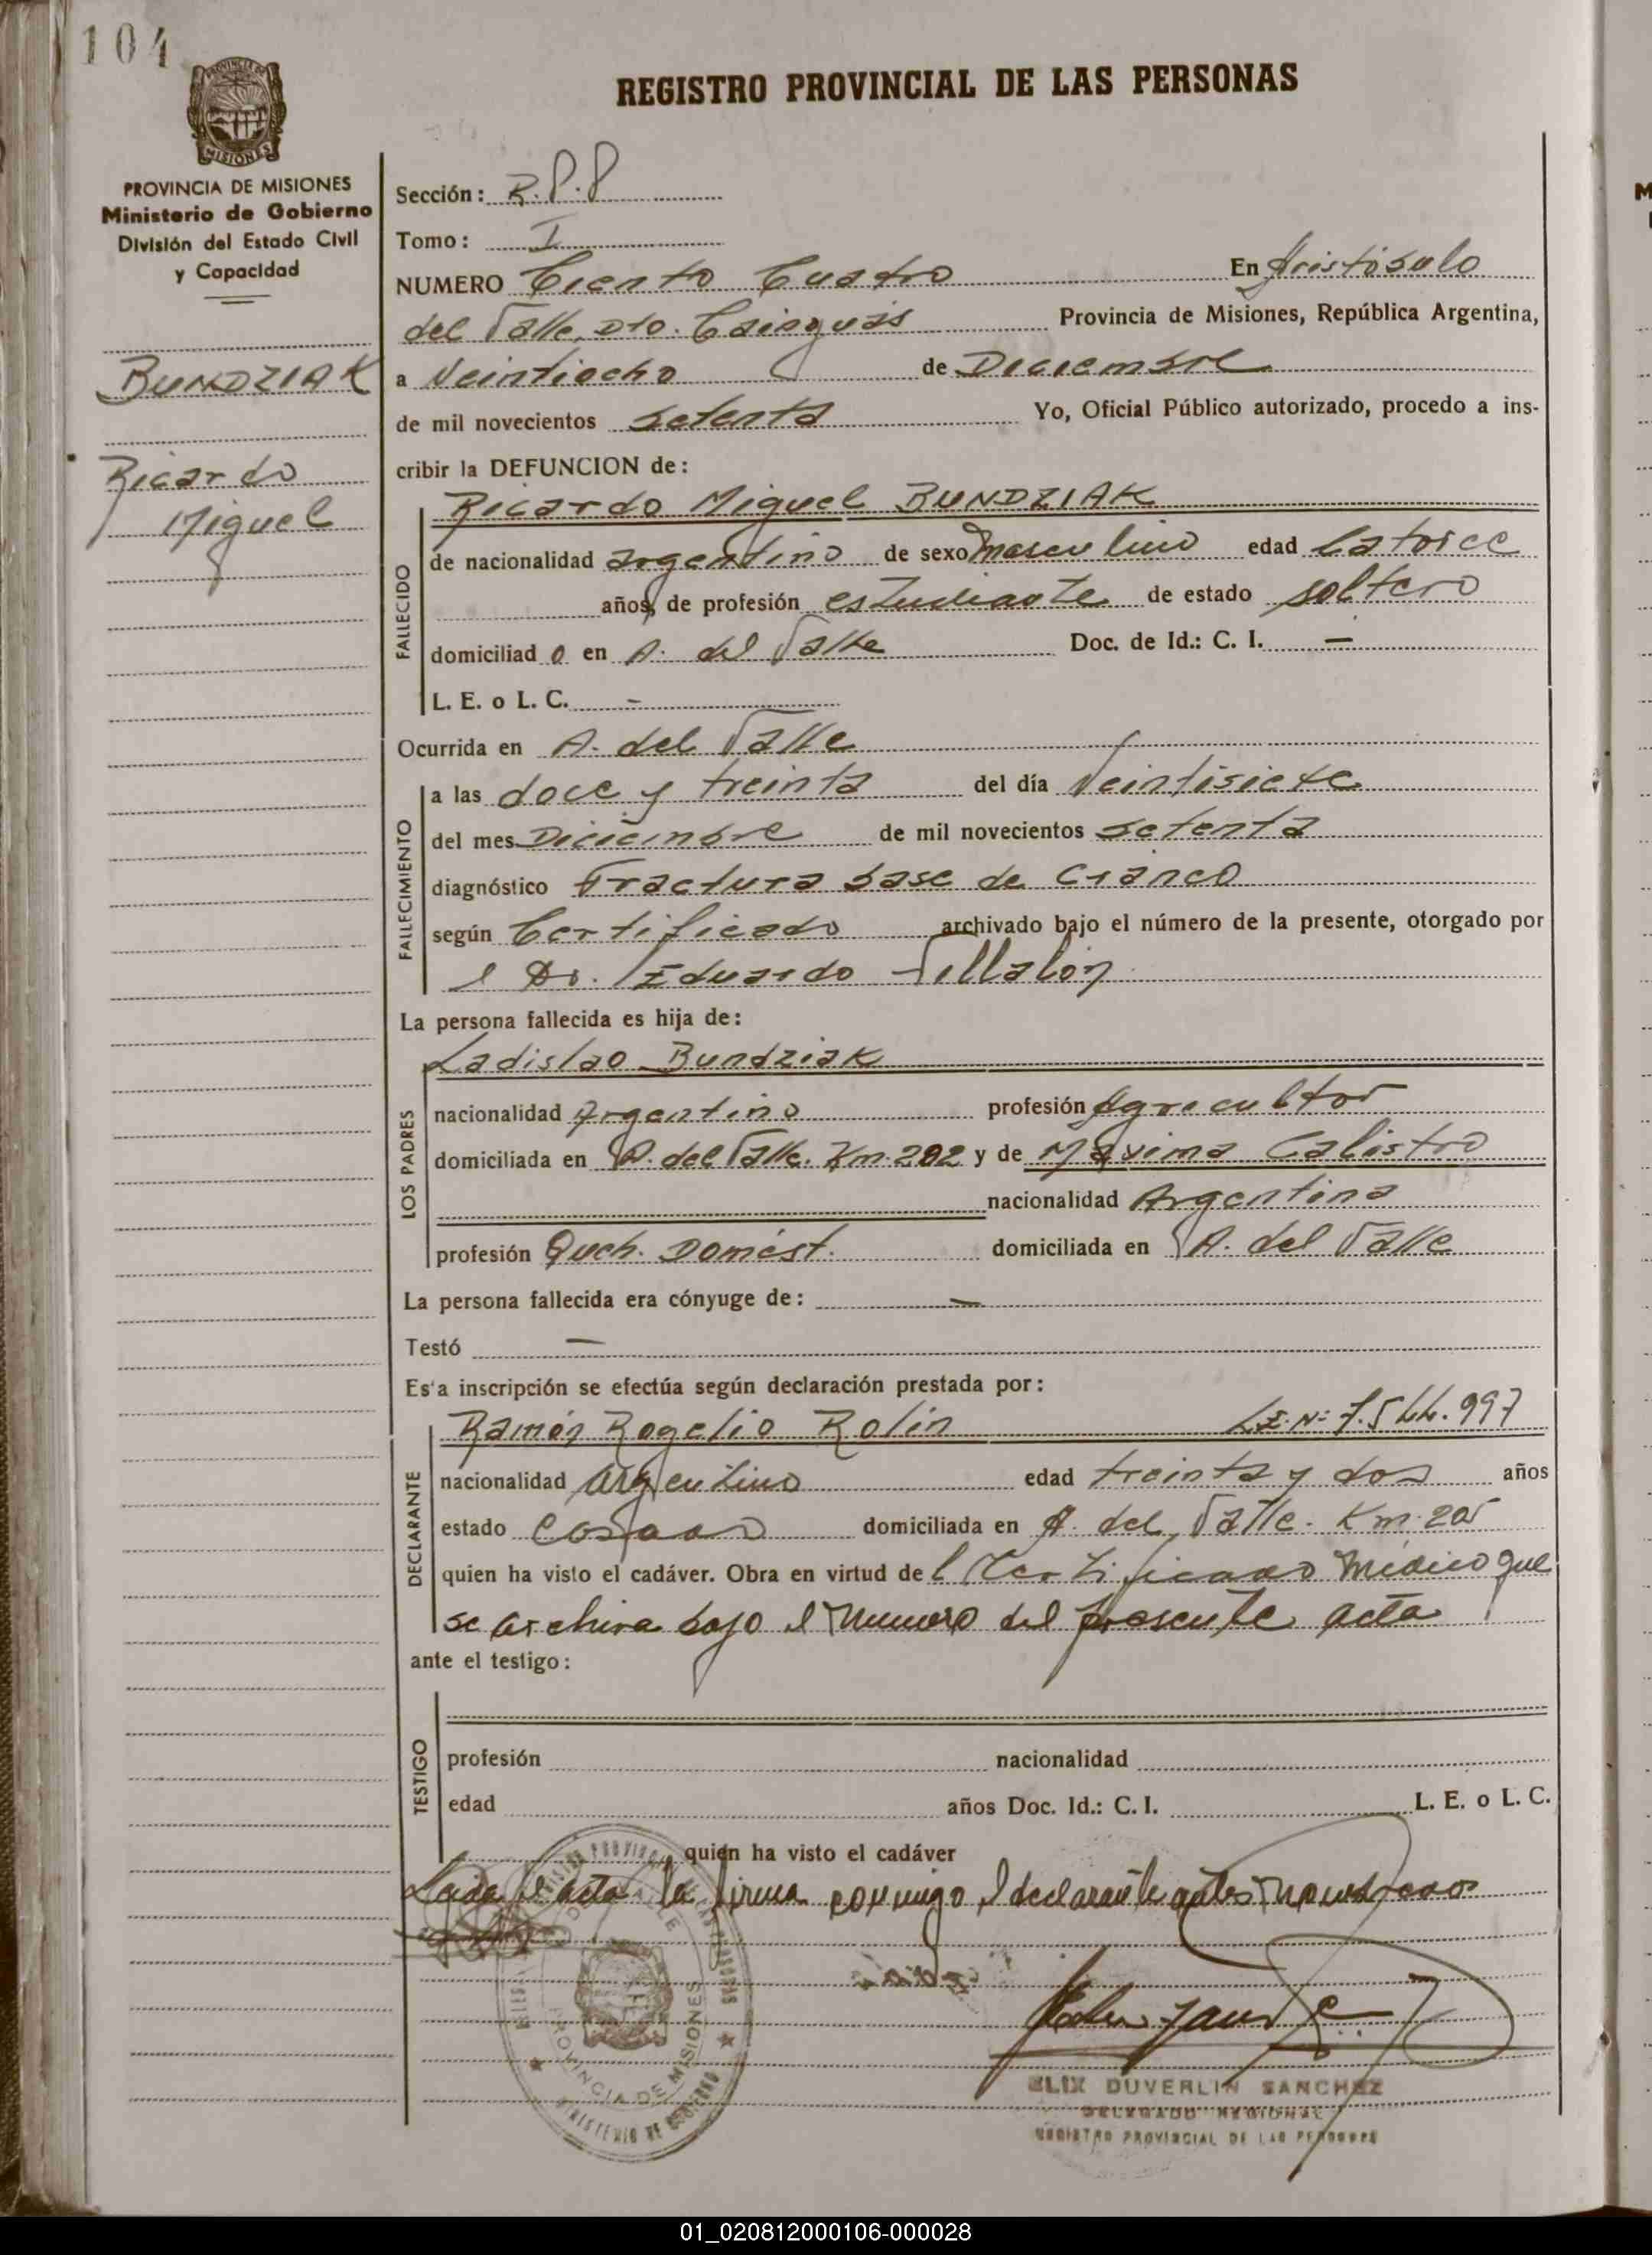 104
PROVINCIA DE MISIONES
Ministerio de Gobierno
División del Estado Civil
y Capacidad
BUNDZIAK
Ricardo
Miguel
REGISTRO PROVINCIAL DE LAS PERSONAS
Sección: R.P.P
Tomo: I
NUMERO Ciento Cuatro En Aristóbulo
del Valle, Dto. Cainguás Provincia de Misiones, República Argentina,
a Veintiocho de Diciembre
de mil novecientos setenta Yo, Oficial Público autorizado, procedo a ins-
cribir la DEFUNCION de:
Ricardo Miguel BUNDZIAK
FALLECIDO
de nacionalidad argentino de sexo masculino edad Catorce
años, de profesión estudiante de estado soltero
domiciliad o en A. del Valle Doc. de Id.: C. I. —
L. E. o L. C. -
Ocurrida en A. del Valle
FALLECIMIENTO
a las doce y treinta del día Veintisiete
del mes Diciembre de mil novecientos setenta
diagnóstico Fractura base de Cráneo
según Certificado archivado bajo el número de la presente, otorgado por
el Dr. Eduardo Villalón
La persona fallecida es hija de:
Ladislao Bundziak
LOS PADRES
nacionalidad Argentino profesión Agricultor
domiciliada en A. del Valle. Km. 202 y de Máxima Calistro
nacionalidad Argentina
profesión Queh. Domést. domiciliada en A. del Valle
La persona fallecida era cónyuge de: —
Testó —
Es'a inscripción se efectúa según declaración prestada por:
Ramón Rogelio Rolin L.E. Nº 7.544.997
DECLARANTE
nacionalidad argentino edad treinta y dos años
estado casado domiciliada en A. del Valle. Km.
quien ha visto el cadáver. Obra en virtud de l Certificado Médico que
se archiva bajo el Numero del presente acta
ante el testigo:
TESTIGO
profesión nacionalidad
edad años Doc. Id.: C. I. L. E. o L. C.
quien ha visto el cadáver
Leida el acta la firma conmigo el declarante antes nombrado
PROVINCIA DE MISIONES
MINISTERIO DE GOBIERNO
ELIX DUVERLIN SANCHEZ
DELEGADO REGIONAL
REGISTRO PROVINCIAL DE LAS PERSONAS
01_020812000106-000028